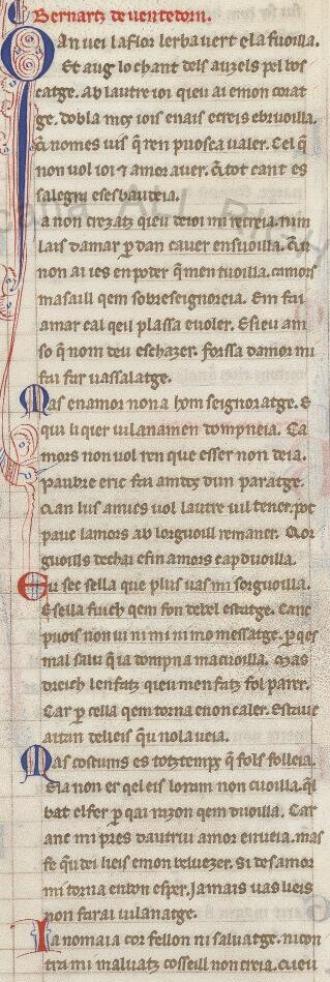 Bernartz de uentedorn.
Qan uei la flor lerba uert e la fuoilla.
Et aug lo chant dels auzels pel bos
catge. ab lautre ioi qieu ai emon corat
ge. dobla mos iois e nais e creis e bruoilla.
e nomes uis qren puosca ualer. Cel q
non uol ioi ⁊ amor auer. q tot cant es
salegra e sesbaudeia.
Ia non crezatz qieu de ioi mi recreia. nim
lais damar p dan cauer en suoilla. qu
non ai ies en poder qmen tuoilla. camors
masaill qem sobreseignoreia. Em fai
amar cal qeil plassa e uoler. E sieu am
so q nom deu eschazer. forssa damor mi
fai far uassalatge.
Mas en amor non a hom seignoratge. e
qui li qier uilanamen dompneia. Ca
mors non uol ren que esser non deia.
paubre e ric fai amdos dun paratge.
can lus amics uol lautre uil tener. pot
pauc lamors ab lorguoill remaner. Qor
guoills dechai e fin amors capduoilla.
Eu sec sella que plus uas mi sorguoilla.
E sella fuich qem fon de bel estatge. Canc
puois non ui ni mi ni mo messatge. p qes
mal salu qia dompna macuoilla. Mas
dreich len fatz qieu men fatz fol parer.
Car p cella qem torna e non caler. Estauc
aitan de lieis qu no la ueia.
Mas costums es totz temps q fols folleia.
Eia non er qel eis lo ram non cuoilla. qil
bat el fer p qai razon qem duoilla. Car
anc mi pres dautrui amor enueia. mas
fe qu dei lieis e mon beluezer. Si de samor
mi torna en bon esper. Jamais uas lieis
non farai uilanatge.
Ia no maia cor fellon ni saluatge. ni con
tra mi maluatz cosseill non creia. cu eu